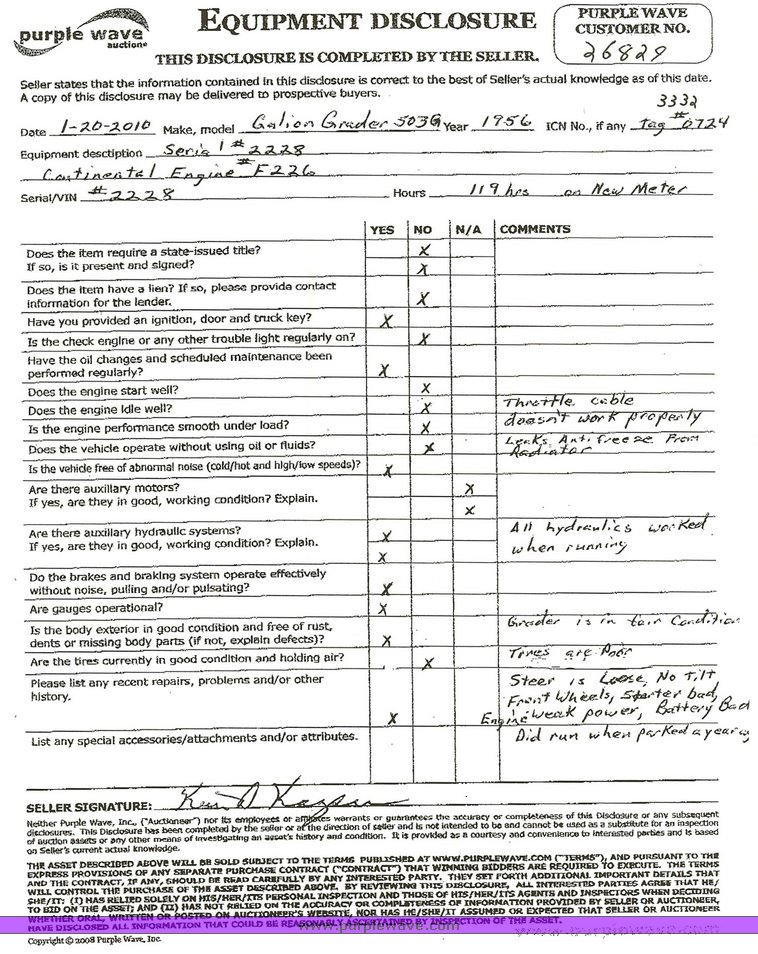 purple wave
auction®
EQUIPMENT DISCLOSURE
THIS DISCLOSURE IS COMPLETED BY THE SELLER.
PURPLE WAVE
CUSTOMER NO.
26829
Seller states that the information contained in this disclosure is correct to the best of Seller's actual knowledge as of this date.
A copy of this disclosure may be delivered to prospective buyers.
3332
Date 1-20-2010 Make, model Galion Grader 503G Year 1956 ICN No., if any tag # 0724
Equipment desctiption Serial # 2228
Continental Engine # F226
Serial/VIN # 2228 Hours 119 hrs on New Meter
YES NO N/A COMMENTS
Does the item require a state-issued title? X
If so, is it present and signed? X
Does the item have a lien? If so, please provide contact
information for the lender. X
Have you provided an ignition, door and truck key? X
Is the check engine or any other trouble light regularly on? X
Have the oil changes and scheduled maintenance been
performed regularly? X
Does the engine start well? X
Does the engine idle well? X Throttle cable
Is the engine performance smooth under load? X doesn't work properly
Does the vehicle operate without using oil or fluids? X Leaks Antifreeze From
Radiator
Is the vehicle free of abnormal noise (cold/hot and high/low speeds)? X
Are there auxillary motors? X
If yes, are they in good, working condition? Explain. X
Are there auxillary hydraulic systems? X All hydraulics worked
If yes, are they in good, working condition? Explain. X when running
Do the brakes and braking system operate effectively
without noise, pulling and/or pulsating? X
Are gauges operational? X
Is the body exterior in good condition and free of rust, Grader is in fair Condition
dents or missing body parts (if not, explain defects)? X
Are the tires currently in good condition and holding air? X Tires are Poor
Please list any recent repairs, problems and/or other Steer is Loose, No tilt
history. Front Wheels, Starter bad,
X Engine weak power, Battery Bad
List any special accessories/attachments and/or attributes. Did run when parked a year ag
SELLER SIGNATURE:
Neither Purple Wave, Inc., ("Auctioneer") nor its employees or affiliates warrants or guarantees the accuracy or completeness of this Disclosure or any subsequent
disclosures. This Disclosure has been completed by the seller or at the direction of seller and is not intended to be and cannot be used as a substitute for an inspection
of auction assets or any other means of investigating an asset's history and condition. It is provided as a courtesy and convenience to interested parties and is based
on Seller's current actual knowledge.
THE ASSET DESCRIBED ABOVE WILL BE SOLD SUBJECT TO THE TERMS PUBLISHED AT WWW.PURPLEWAVE.COM ("TERMS"), AND PURSUANT TO THE
EXPRESS PROVISIONS OF ANY SEPARATE PURCHASE CONTRACT ("CONTRACT") THAT WINNING BIDDERS ARE REQUIRED TO EXECUTE. THE TERMS
AND THE CONTRACT, IF ANY, SHOULD BE READ CAREFULLY BY ANY INTERESTED PARTY. THEY SET FORTH ADDITIONAL IMPORTANT DETAILS THAT
WILL CONTROL THE PURCHASE OF THE ASSET DESCRIBED ABOVE. BY REVIEWING THIS DISCLOSURE, ALL INTERESTED PARTIES AGREE THAT HE/
SHE/IT: (I) HAS RELIED SOLELY ON HIS/HER/ITS PERSONAL INSPECTION AND THOSE OF HIS/HER/ITS AGENTS AND INSPECTORS WHEN DECIDING
TO BID ON THE ASSET; AND (II) HAS NOT RELIED ON THE ACCURACY OR COMPLETENESS OF INFORMATION PROVIDED BY SELLER OR AUCTIONEER,
WHETHER ORAL, WRITTEN OR POSTED ON AUCTIONEER'S WEBSITE, NOR HAS HE/SHE/IT ASSUMED OR EXPECTED THAT SELLER OR AUCTIONEER
HAVE DISCLOSED ALL INFORMATION THAT COULD BE REASONABLY ASCERTAINED BY INSPECTION OF THE ASSET.
www.purplewave.com
Copyright © 2008 Purple Wave, Inc.